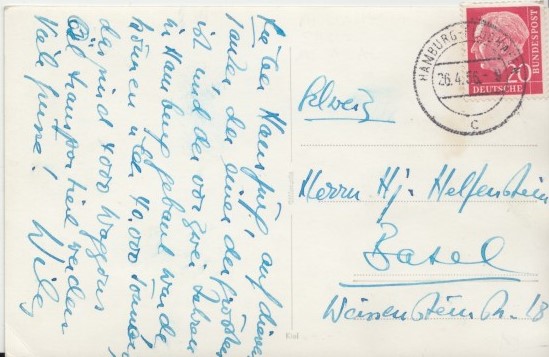 Lieber Hansjürg, auf diesem
Tanker, der einer der größten
ist und der vor zwei Jahren
in Hamburg gebaut wurde
können über 40.000 Tonnen
das sind 4000 Waggons
Öl transportiert werden
Viele Grüsse! Willy
HAMBURG
26.4.56
c
20
DEUTSCHE BUNDESPOST
Schweiz
Herrn Hj. Helfenstein
Basel
Weissensteinstr. 18
Kiel